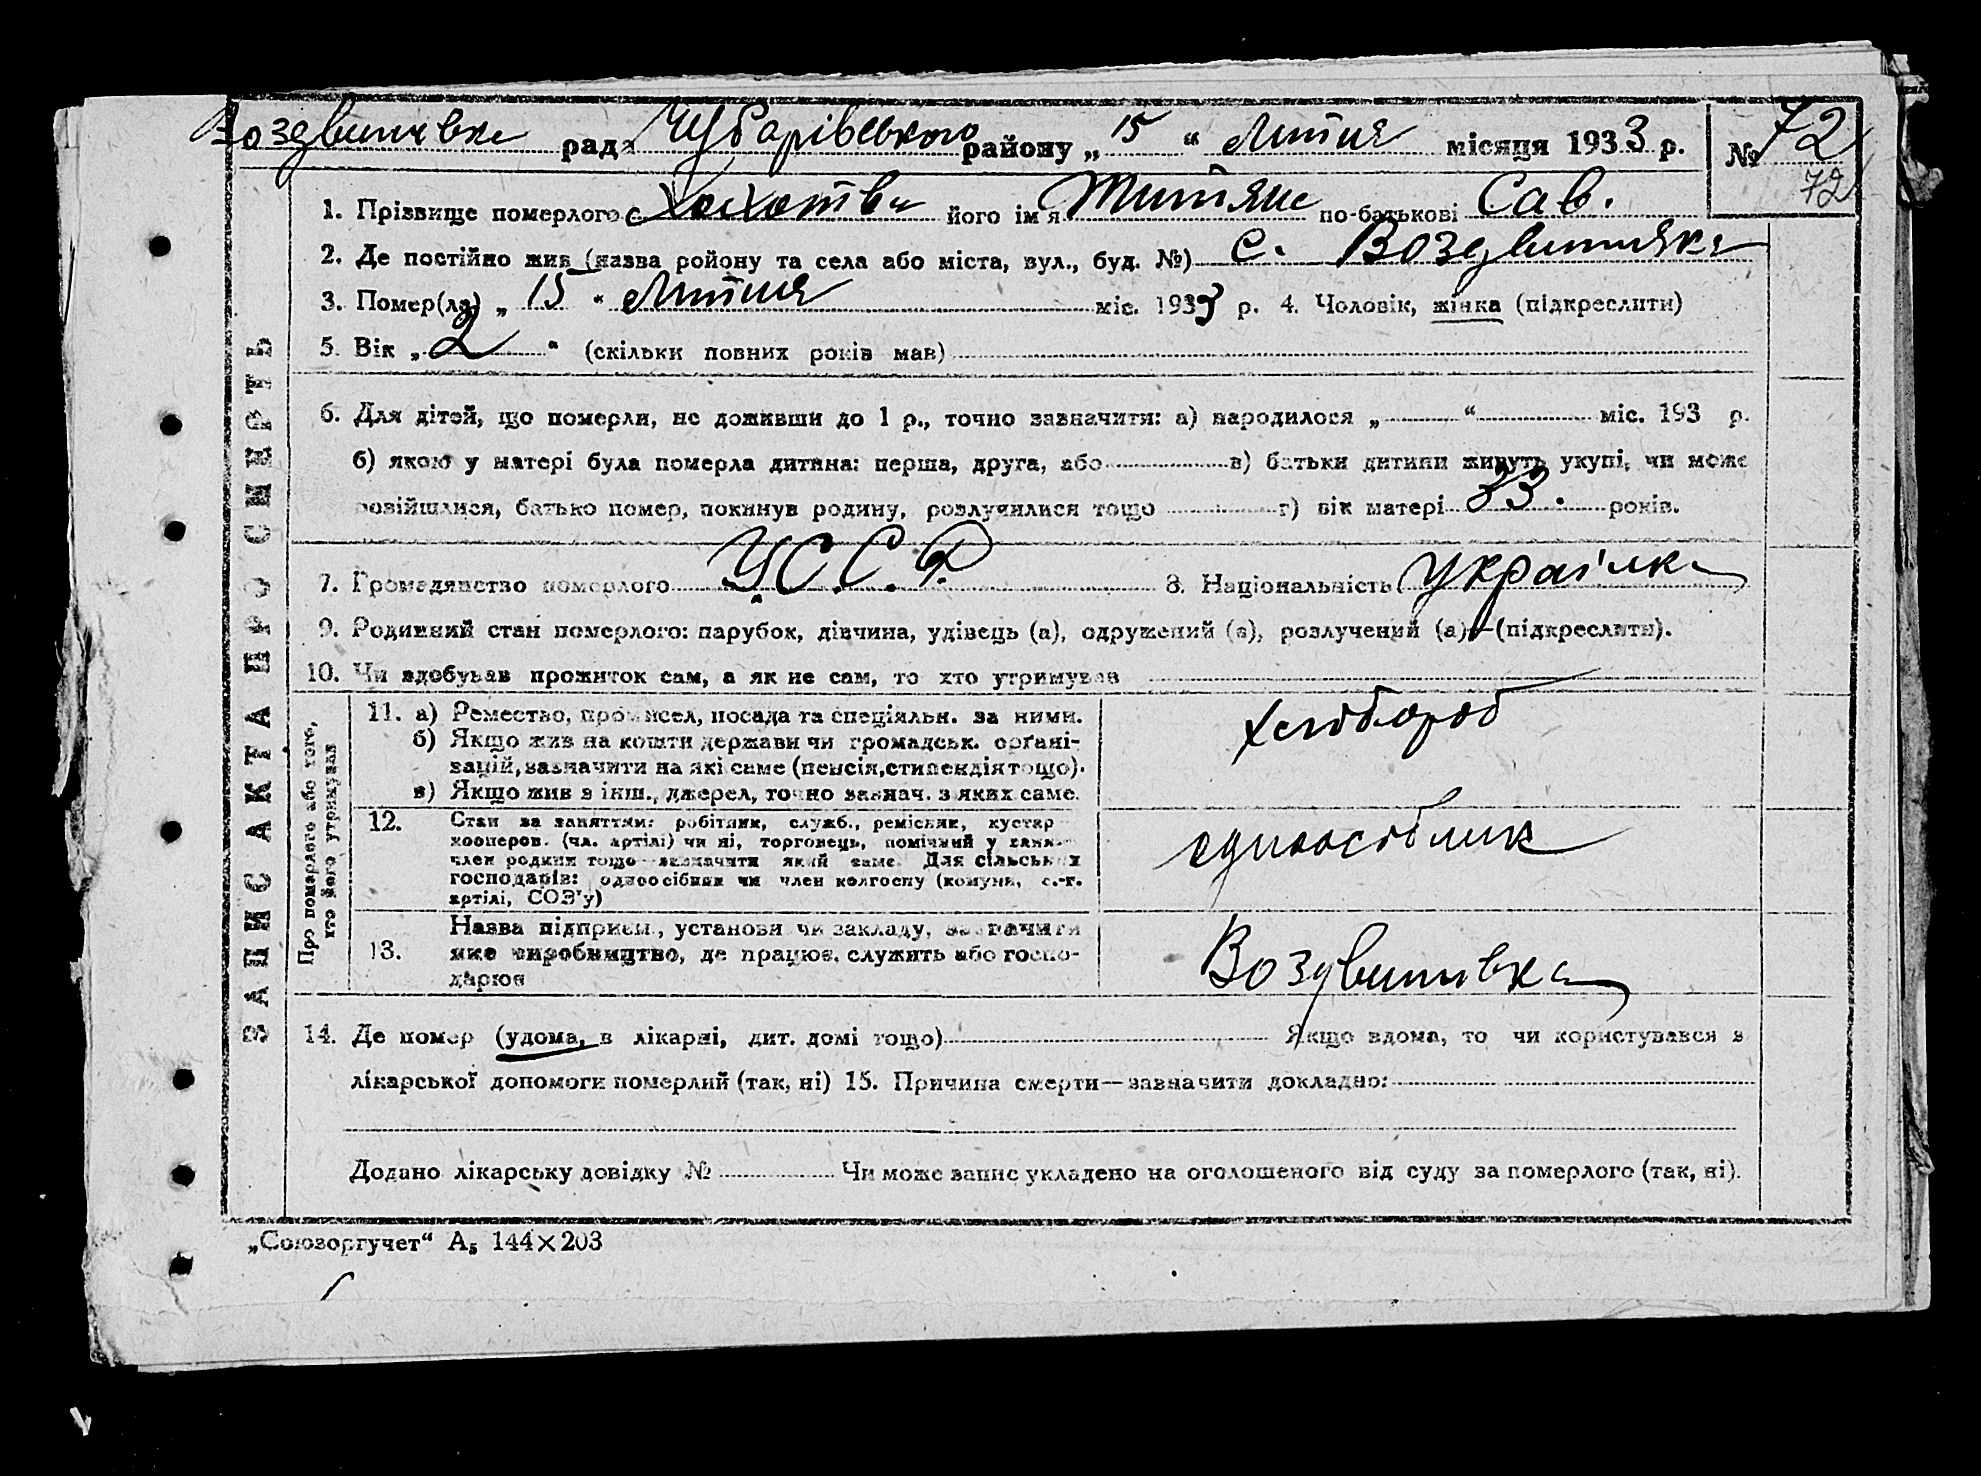 Воздвижівська рада Чубарівського району „15“ Липня місяця 1933 р. № 72
72
1. Прізвище померлого його ім'я Титяна по-батькові Сав.
2. Де постійно жив (назва ройону та села або міста, вул., буд. №) с.
3. Помер(ла) „15“ Липня міс. 1933 р. 4. Чоловік, жінка (підкреслити)
5. Вік „2“ (скільки повних років мав)
6. Для дітей, що померли, не доживши до 1 р., точно зазначити: а) народилося „ “ міс. 193 р.
б) якою у матері була померла дитина: перша, друга, або в) батьки дитини живуть укупі, чи може
розійшлися, батько помер, покинув родину, розлучилися тощо г) вік матері 33. років.
7. Громадянство померлого У.С.С.Р. 8. Національність Українка
9. Родинний стан померлого: парубок, дівчина, удівець (а), одружений (а), розлучений (а)—(підкреслити).
10. Чи здобував прожиток сам, а як не сам, то хто утримував
ЗАПИС АКТА ПРО СМЕРТЬ
Про померлого або того,
хто його утримував
11. а) Ремество, промисел, посада та спеціяльн. за ними.
б) Якщо жив на кошти держави чи громадськ. орґані-
зацій, зазначити на які саме (пенсія, стипендія тощо).
в) Якщо жив з інш., джерел, точно зазнач. з яких саме.
хлібороб
12. Стан за заняттям: робітник, служб., ремісник, кустар
кооперов. (чл. артілі) чи ні, торговець, помічний у занят.
член родини тощо—зазначити який саме. Для сільських
господарів: одноосібник чи член колгоспу (комуни, с.-г.
артілі, СОЗ'у)
одноосібник
13. Назва підприєм., установи чи закладу, зазначити
яке виробництво, де працює, служить або госпо-
дарює
14. Де помер (удома, в лікарні, дит. домі тощо) Якщо вдома, то чи користувався з
лікарської допомоги померлий (так, ні) 15. Причина смерти—зазначити докладно:
Додано лікарську довідку № Чи може запис укладено на оголошеного від суду за померлого (так, ні).
„Союзоргучет“ А₅ 144×203